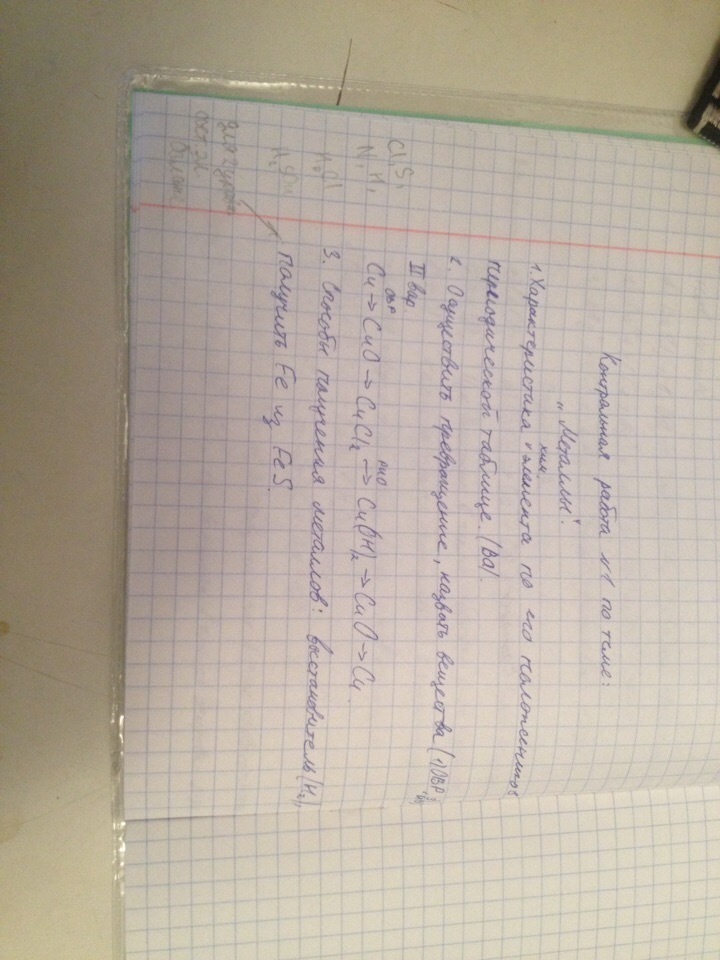 Контрольная работа №1 по теме:
„Металлы".
1. Характеристика хим. элемента по его положению в
периодической таблице. (Ba).
2. Осуществить превращение, назвать вещества (1) ОВР,
II вар
Cu → CuO → CuCl₂ → Cu(OH)₂ → CuO → Cu.
ОВР
РИО
3. Способы получения металлов: восстановитель (H₂),
получить Fe из FeS.